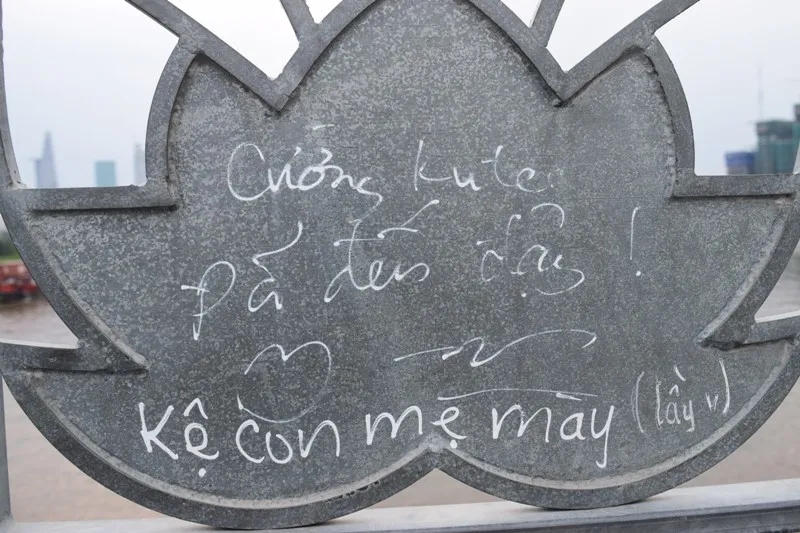 Cường kute
Đã đến đây !
Kệ con mẹ mày (lầy v)